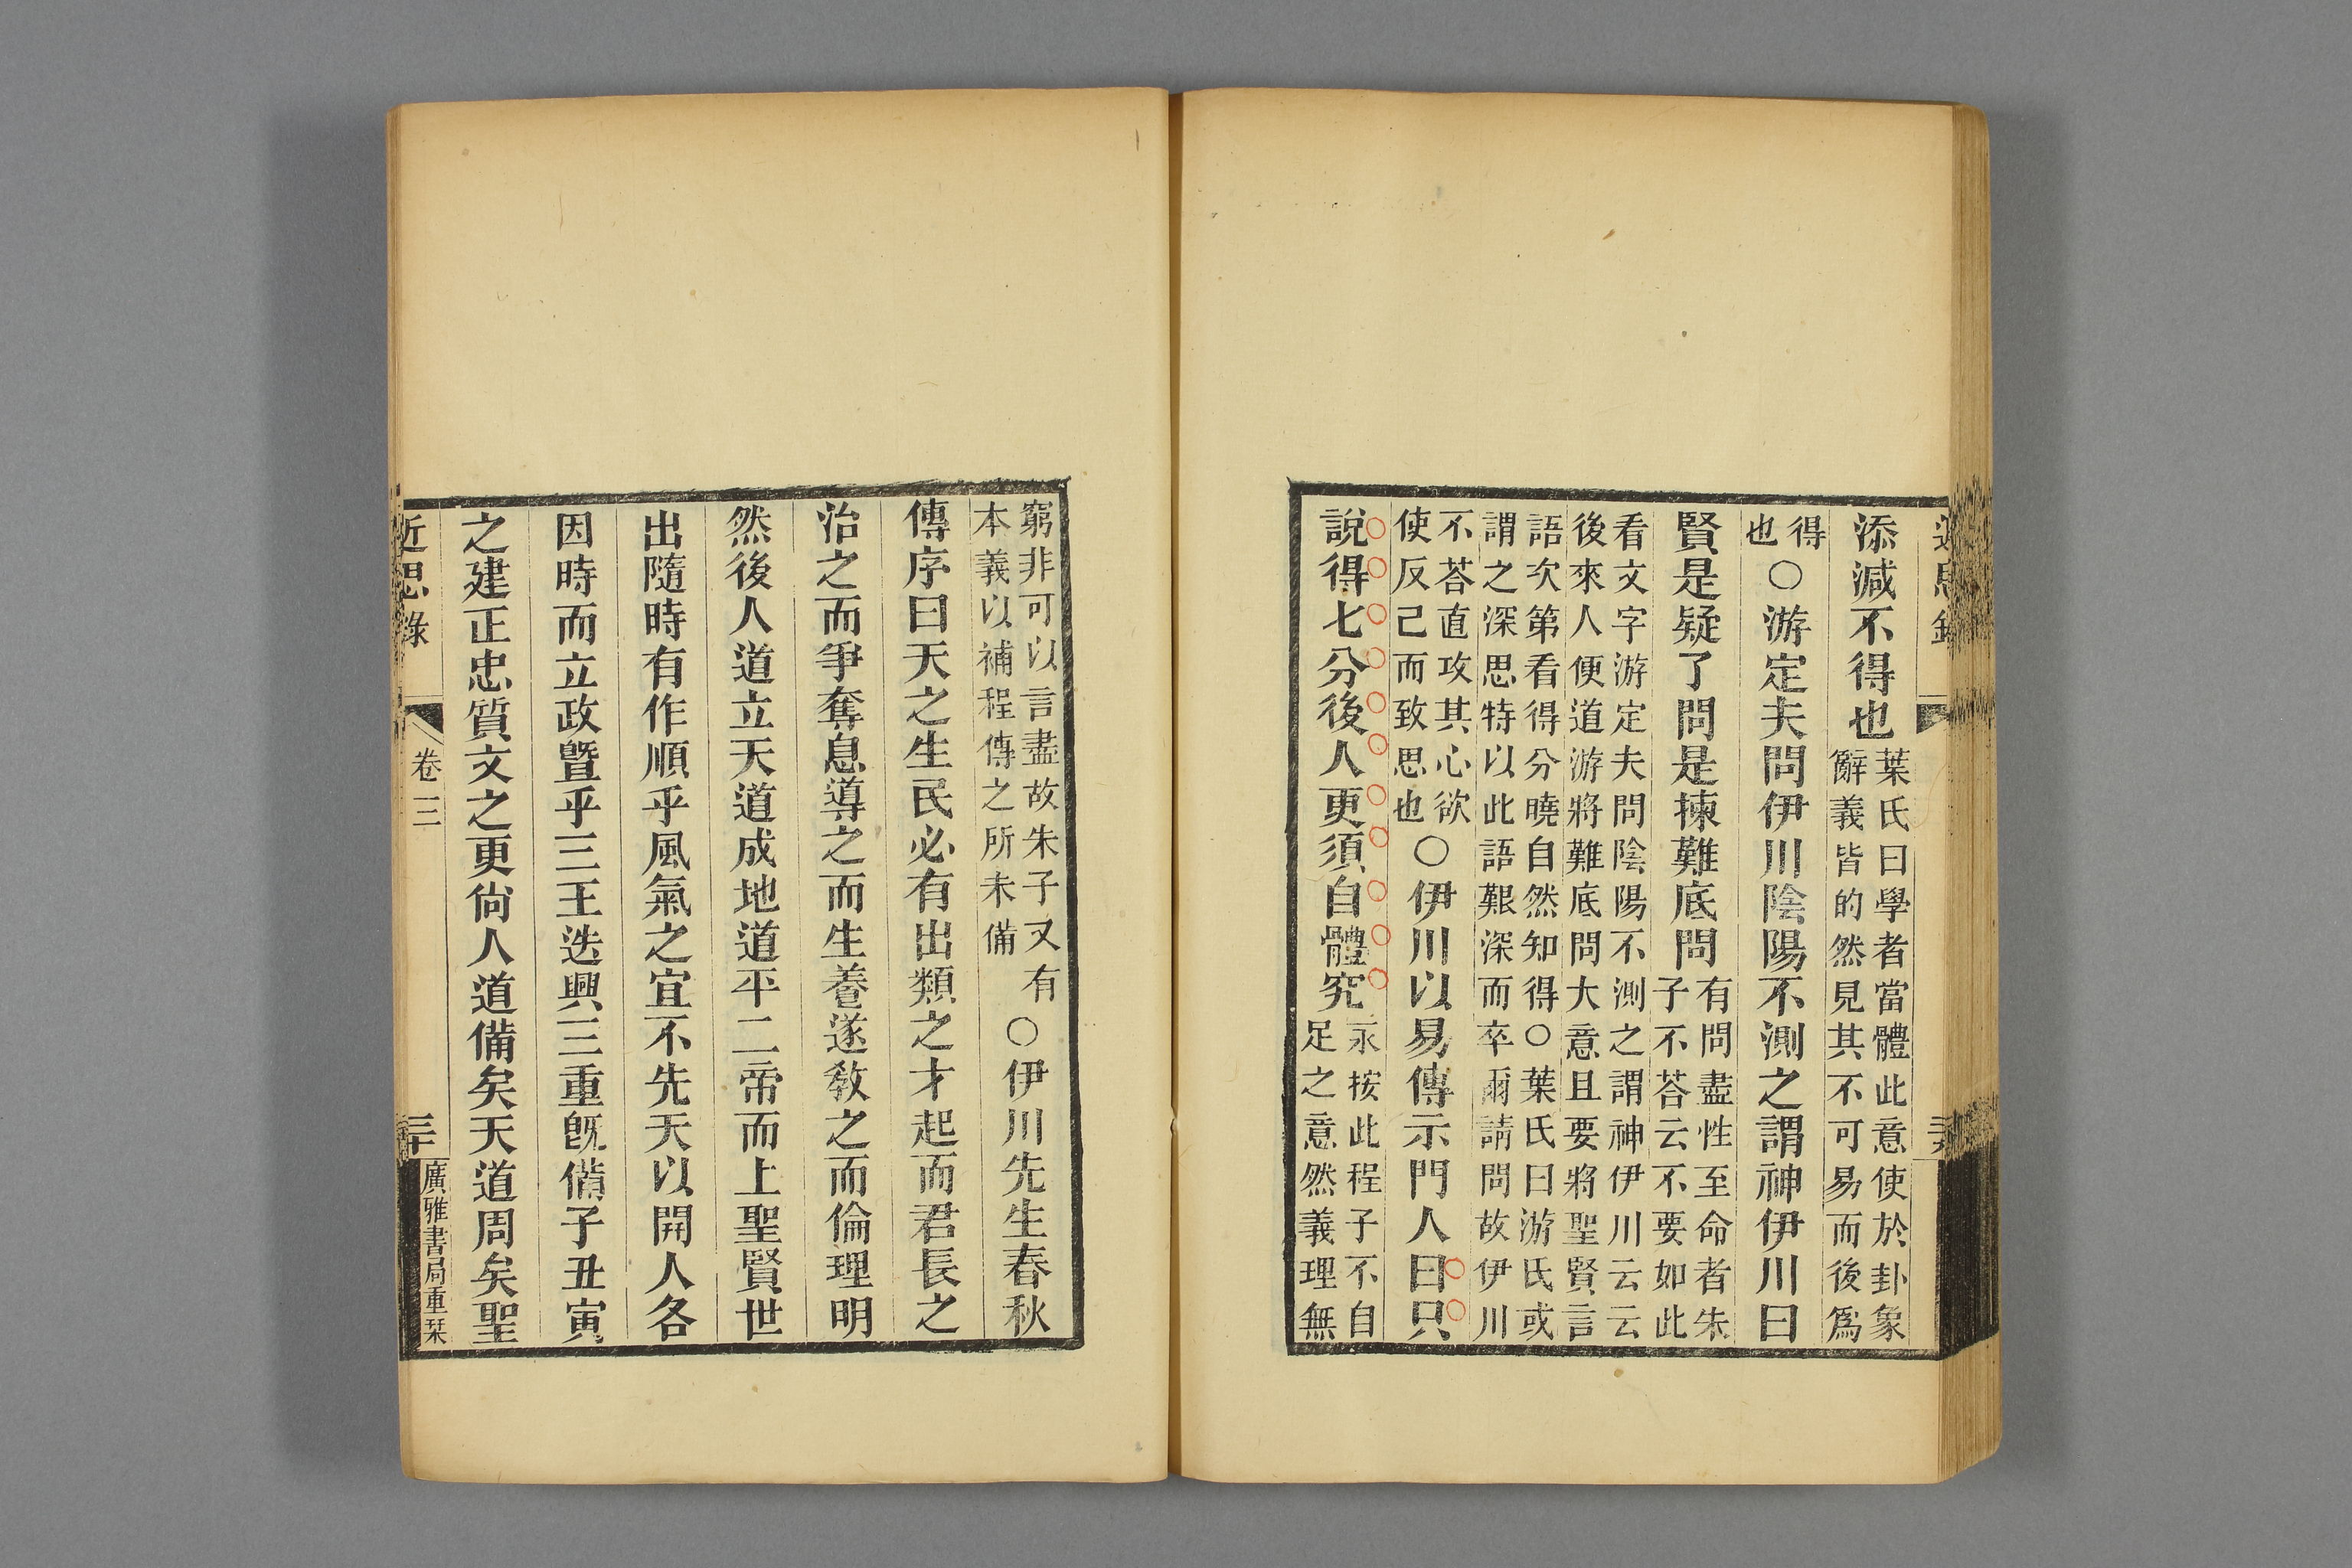 添減不得也葉氏曰學者當體此意使於卦象
辭義皆的然見其不可易而後爲
得
也○游定夫問伊川陰陽不測之謂神伊川曰
賢是疑了問是揀難底問有問盡性至命者朱
子不荅云不要如此
看文字游定夫問陰陽不測之謂神伊川云云
後來人便道游將難底問大意且要將聖賢言
語次第看得分曉自然知得○葉氏曰游氏或
謂之深思特以此語艱深而卒爾請問故伊川
不荅直攻其心欲
使反己而致思也○伊川以易傳示門人曰只
說得七分後人更須自體究永按此程子不自
足之意然義理無
窮非可以言盡故朱子又有
本義以補程傳之所未備○伊川先生春秋
傳序曰天之生民必有出類之才起而君長之
治之而爭奪息導之而生養遂敎之而倫理明
然後人道立天道成地道平二帝而上聖賢世
出隨時有作順乎風氣之宜不先天以開人各
因時而立政曁乎三王迭興三重旣備子丑寅
之建正忠質文之更尙人道備矣天道周矣聖
近思錄
卷三
三十
廣雅書局重栞